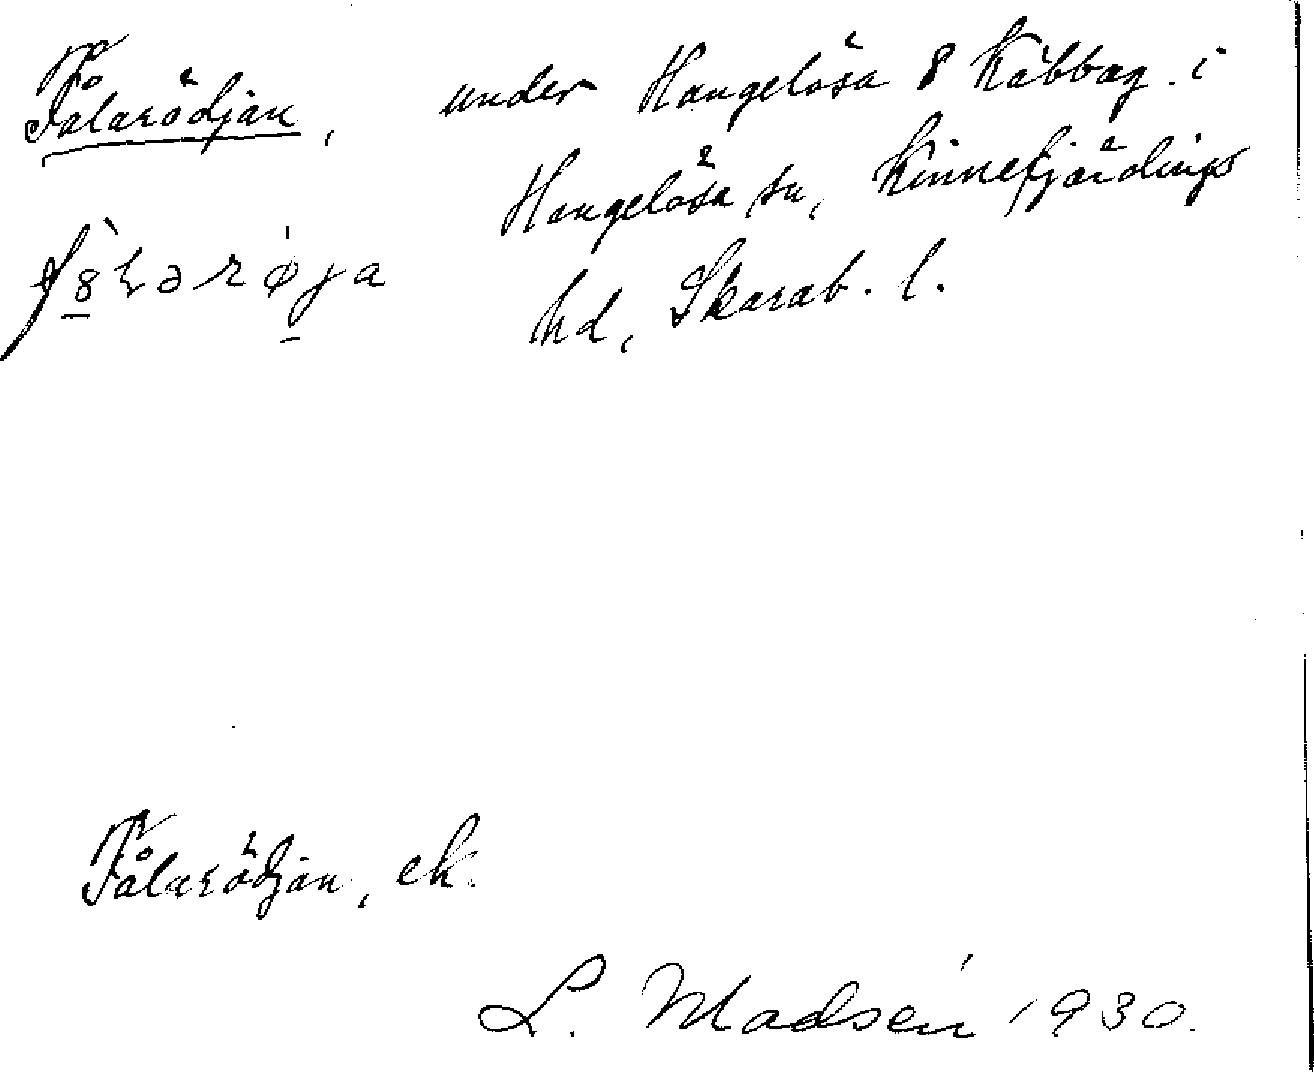 Fålarödjan, under Hangelösa 8 Käbbag. i
Hangelösa sn, Kinnefjärdings
hd, Skarab. l.
Fålarödjan, ek.
L. Madsén 1930.